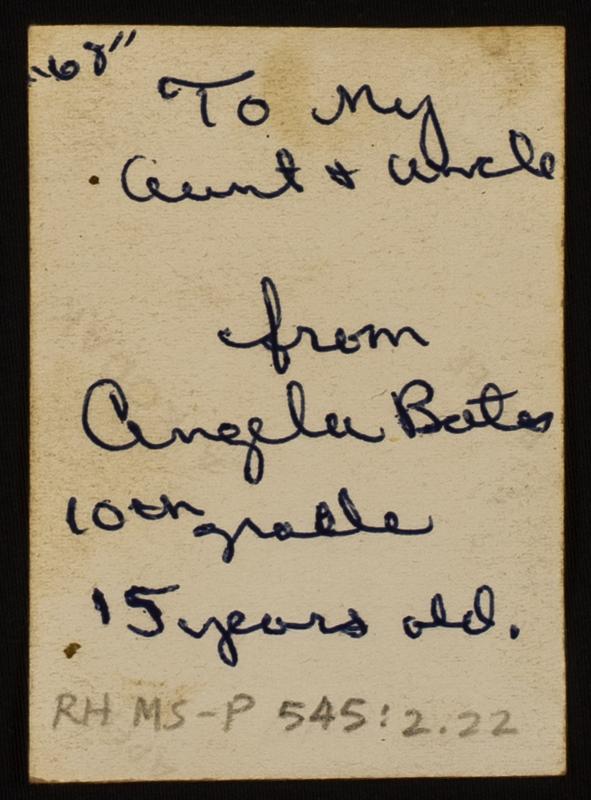 "68"
To My
Aunt & Uncle
from
Angela Bates
10th grade
15 years old.
RH MS-P 545:2.22